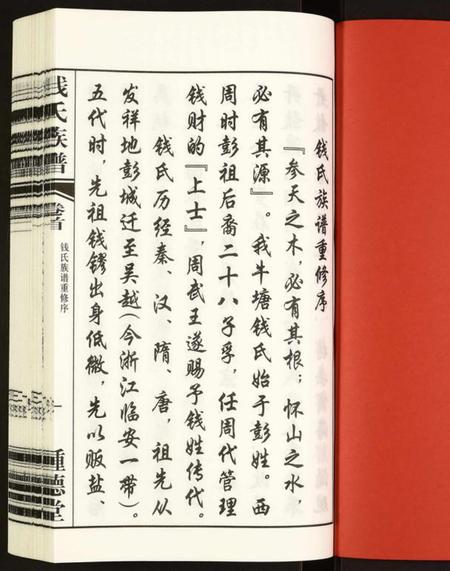 钱氏族谱重修序
『参天之木，必有其根；怀山之水，
必有其源』。我牛塘钱氏始于彭姓。西
周时彭祖后裔二十八子孚，任周代管理
钱财的『上士』，周武王遂赐予钱姓传代。
钱氏历经秦、汉、隋、唐，祖先从
发祥地彭城迁至吴越（今浙江临安一带）。
五代时，先祖钱镠出身低微，先以贩盐、
钱氏族谱
卷首
钱氏族谱重修序
一
种德堂